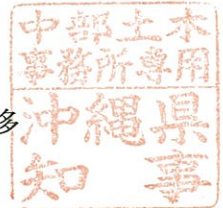 中部土木
事務所専用
多
沖縄県
知事